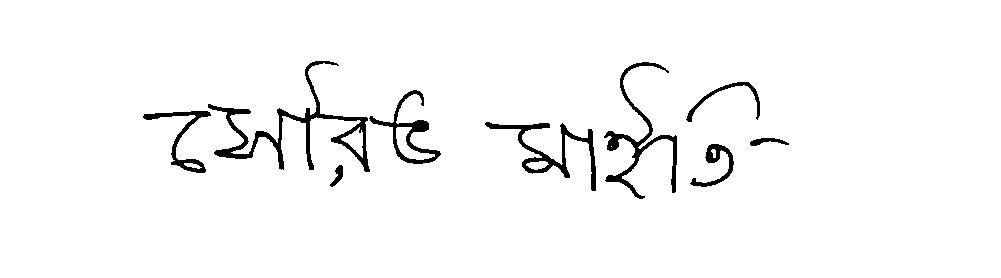 সৌরভ মাইতি